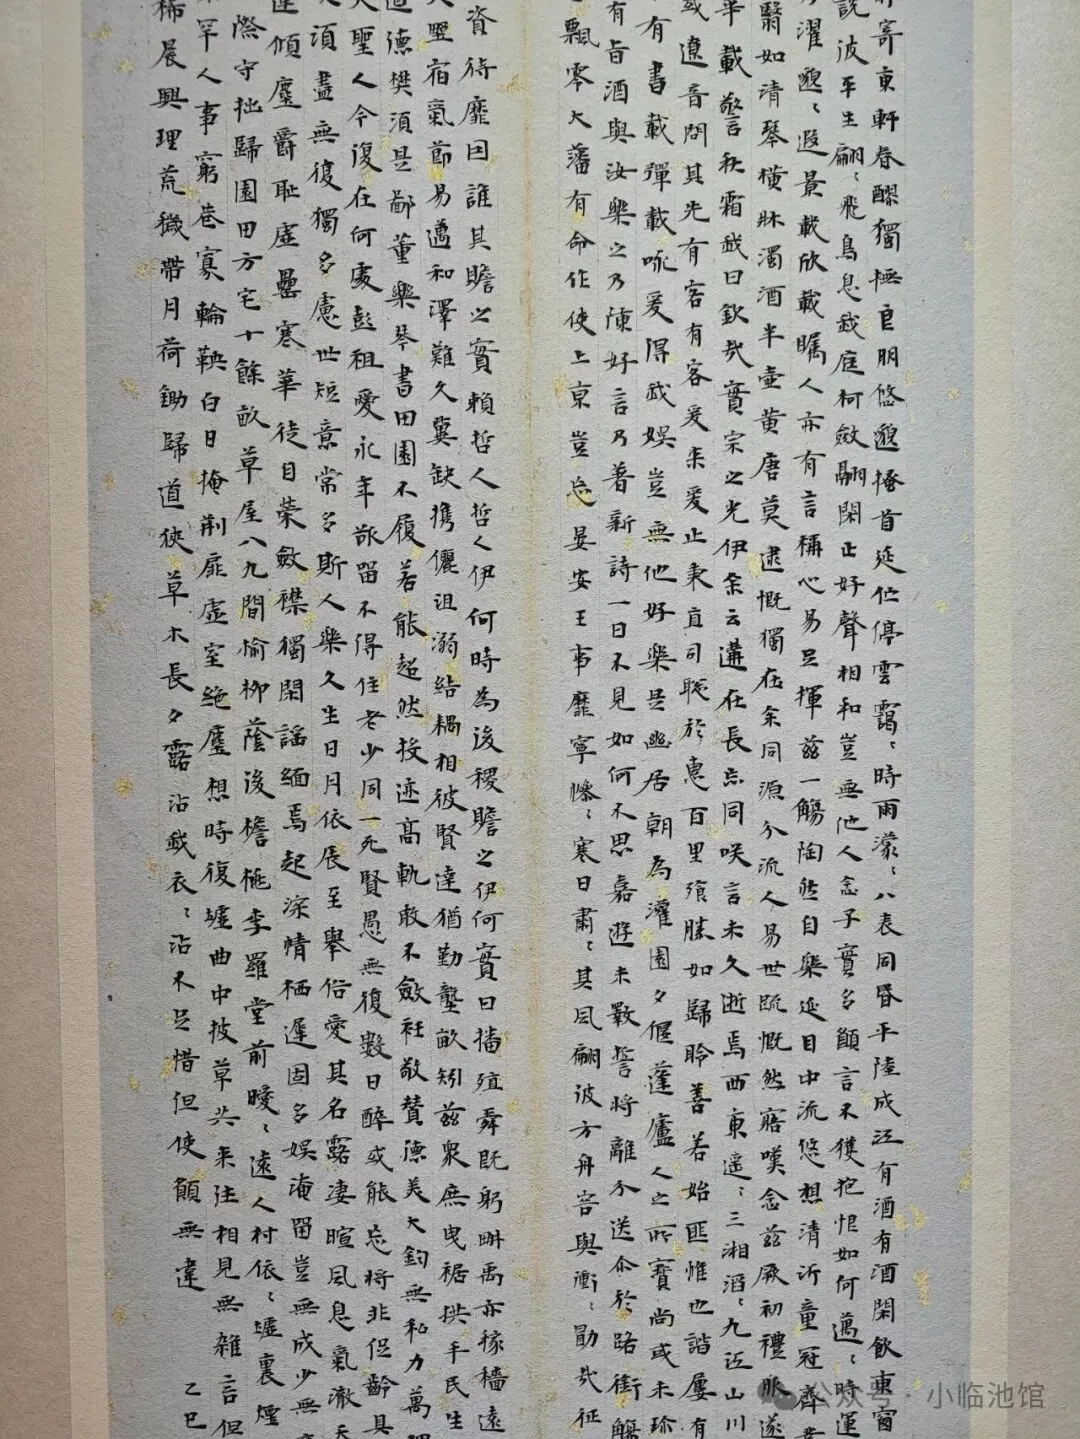 寄東軒春醪獨撫良朋悠邈搔首延佇停雲靄〻時雨濛〻八表同昏平陸成江有酒有酒閑飲東窗
說彼平生翩〻飛鳥息我庭柯斂翮閑止好聲相和豈無他人念子實多願言不獲抱恨如何邁〻時運
乃濯邈〻遐景載欣載矚人亦有言稱心易足揮茲一觴陶然自樂延目中流悠想清沂童冠齊
翳如清琴橫牀濁酒半壺黃唐莫逮慨獨在余同源分流人易世疏慨然寤嘆念茲厥初禮服遂
華載警秋霜我曰欽哉實宗之光伊余云遘在長忘同咲言未久逝焉西東遙〻三湘滔〻九江山川
或遼音問其先有客有客爰來爰止秉直司聰於惠百里飡勝如歸聆善若始匪惟也諧屢有
有書載彈載詠爰得我娛豈無他好樂是幽居朝為灌園夕偃蓬廬人之所寶尚或未珍
有旨酒與汝樂之乃陳好言乃著新詩一日不見如何不思嘉遊未斁誓將離分送尒於路銜觴
飄零大藩有命作使上京豈忘晏安王事靡寧慘〻寒日肅〻其風翩彼方舟容與衝〻勖哉征
資待靡因誰其贍之實賴哲人哲人伊何時為後稷贍之伊何實曰播殖舜既躬畊禹亦稼穡遠
夫野宿氣節易邁和澤難久冀缺携儷沮溺結耦相彼賢達猶勤壟畝矧茲衆庶曳裾拱手民生
道德樊須是鄙董樂琴書田園不履若能超然投迹高軌敢不斂衽敬贊德美大鈞無私力萬
大聖人今復在何處彭祖愛永年欲留不得住老少同一死賢愚無復數日醉或能忘將非促齡具
須盡無復獨多慮世短意常多斯人樂久生日月依辰至舉俗愛其名露凄暄風息氣澈天
蓬傾塵爵恥虛罍寒華徒自榮斂襟獨閑謠緬焉起深情栖遲固多娛淹留豈無成少無
際守拙歸園田方宅十餘畝草屋八九間榆柳蔭後檐桃李羅堂前曖〻遠人村依〻墟裏煙
罕人事窮巷寡輪鞅白日掩荊扉虛室絕塵想時復墟曲中披草共来往相見無雜言但
稀晨興理荒穢帶月荷鋤歸道俠草木長夕露沾我衣〻沾不足惜但使願無違 乙巳
公众号·小临池馆